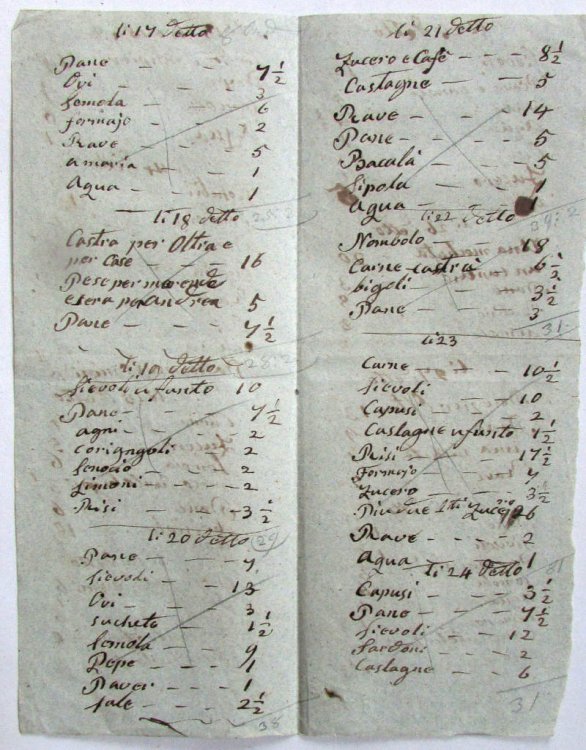 li 17 detto
Pane - - - 7 1/2
Ovi - - - 3
Semola - - 6
formajo - - 2
Rave - - - 5
amaria - - 1
Aqua - - - 1
li 18 detto 25:2
Castra per Oltra e
per Case - - - 16
Pese per merenda
e sera per Andrea 5
Pane - - - 7 1/2
li 19 detto 28:2
Sievoli a funto 10
Pane - - - 7 1/2
agni - - - 2
corigngoli - 2
fenocio - - 2
Limoni - - - 2
Risi - - - 3 1/2
li 20 detto 29
Pane - - - 7
Sievoli - - - 13
Ovi - - - 3
sucheto - - 1 1/2
Semola - - - 9
Pepe - - - 1
Raver - - - 1
Sale - - - 2 1/2
38
li 21 detto
Zucero e Cafè - - 8 1/2
Castagne - - - 5
Rave - - - 14
Pane - - - 5
Bacalà - - - 5
Sipola - - - 1
Agua - - - 1
li 22 detto 39:2
Nombolo - - 18
Carne castra 6 1/2
bigoli - - 3 1/2
Pane - - - 3
31
li 23
Carne - - - 10 1/2
Sievoli - - 10
Capusi - - 2
Castagne a funto 7 1/2
Risi - - - 17 1/2
Formajo - - 7
Zucero - - - 3 1/2
Rave - - - 2
Aqua - - - 1
li 24 detto
Capusi - - - 3 1/2
Pane - - - 7 1/2
Sievoli - - 12
Sardoni - - 2
Castagne - - 6
31